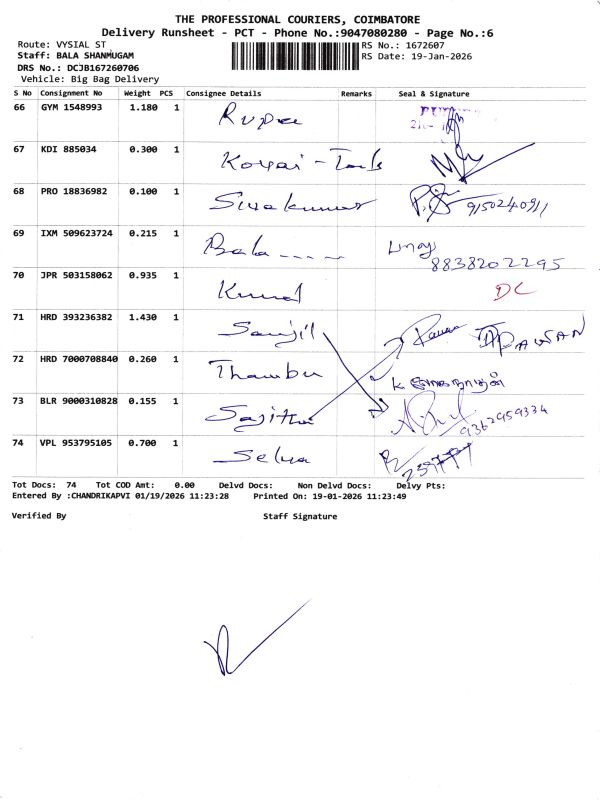 THE PROFESSIONAL COURIERS, COIMBATORE
Delivery Runsheet - PCT - Phone No.:9047080280 - Page No.:6
Route: VYSIAL ST RS No.: 1672607
Staff: BALA SHANMUGAM RS Date: 19-Jan-2026
DRS No.: DCJB167260706
Vehicle: Big Bag Delivery
S No Consignment No Weight PCS Consignee Details Remarks Seal & Signature
66 GYM 1548993 1.180 1 Rupa
67 KDI 885034 0.300 1 Kovai - Tools
68 PRO 18836982 0.100 1 Sivakumar 9150240911
69 IXM 509623724 0.215 1 Bala
8838202295
70 JPR 503158062 0.935 1 Kunal DC
71 HRD 393236382 1.430 1 Sanjil PAWAN
72 HRD 7000708840 0.260 1 Thambu
73 BLR 9000310828 0.155 1 Sajitha 9362959334
74 VPL 953795105 0.700 1 Selva
Tot Docs: 74 Tot COD Amt: 0.00 Delvd Docs: Non Delvd Docs: Delvy Pts:
Entered By :CHANDRIKAPVI 01/19/2026 11:23:28 Printed On: 19-01-2026 11:23:49
Verified By Staff Signature